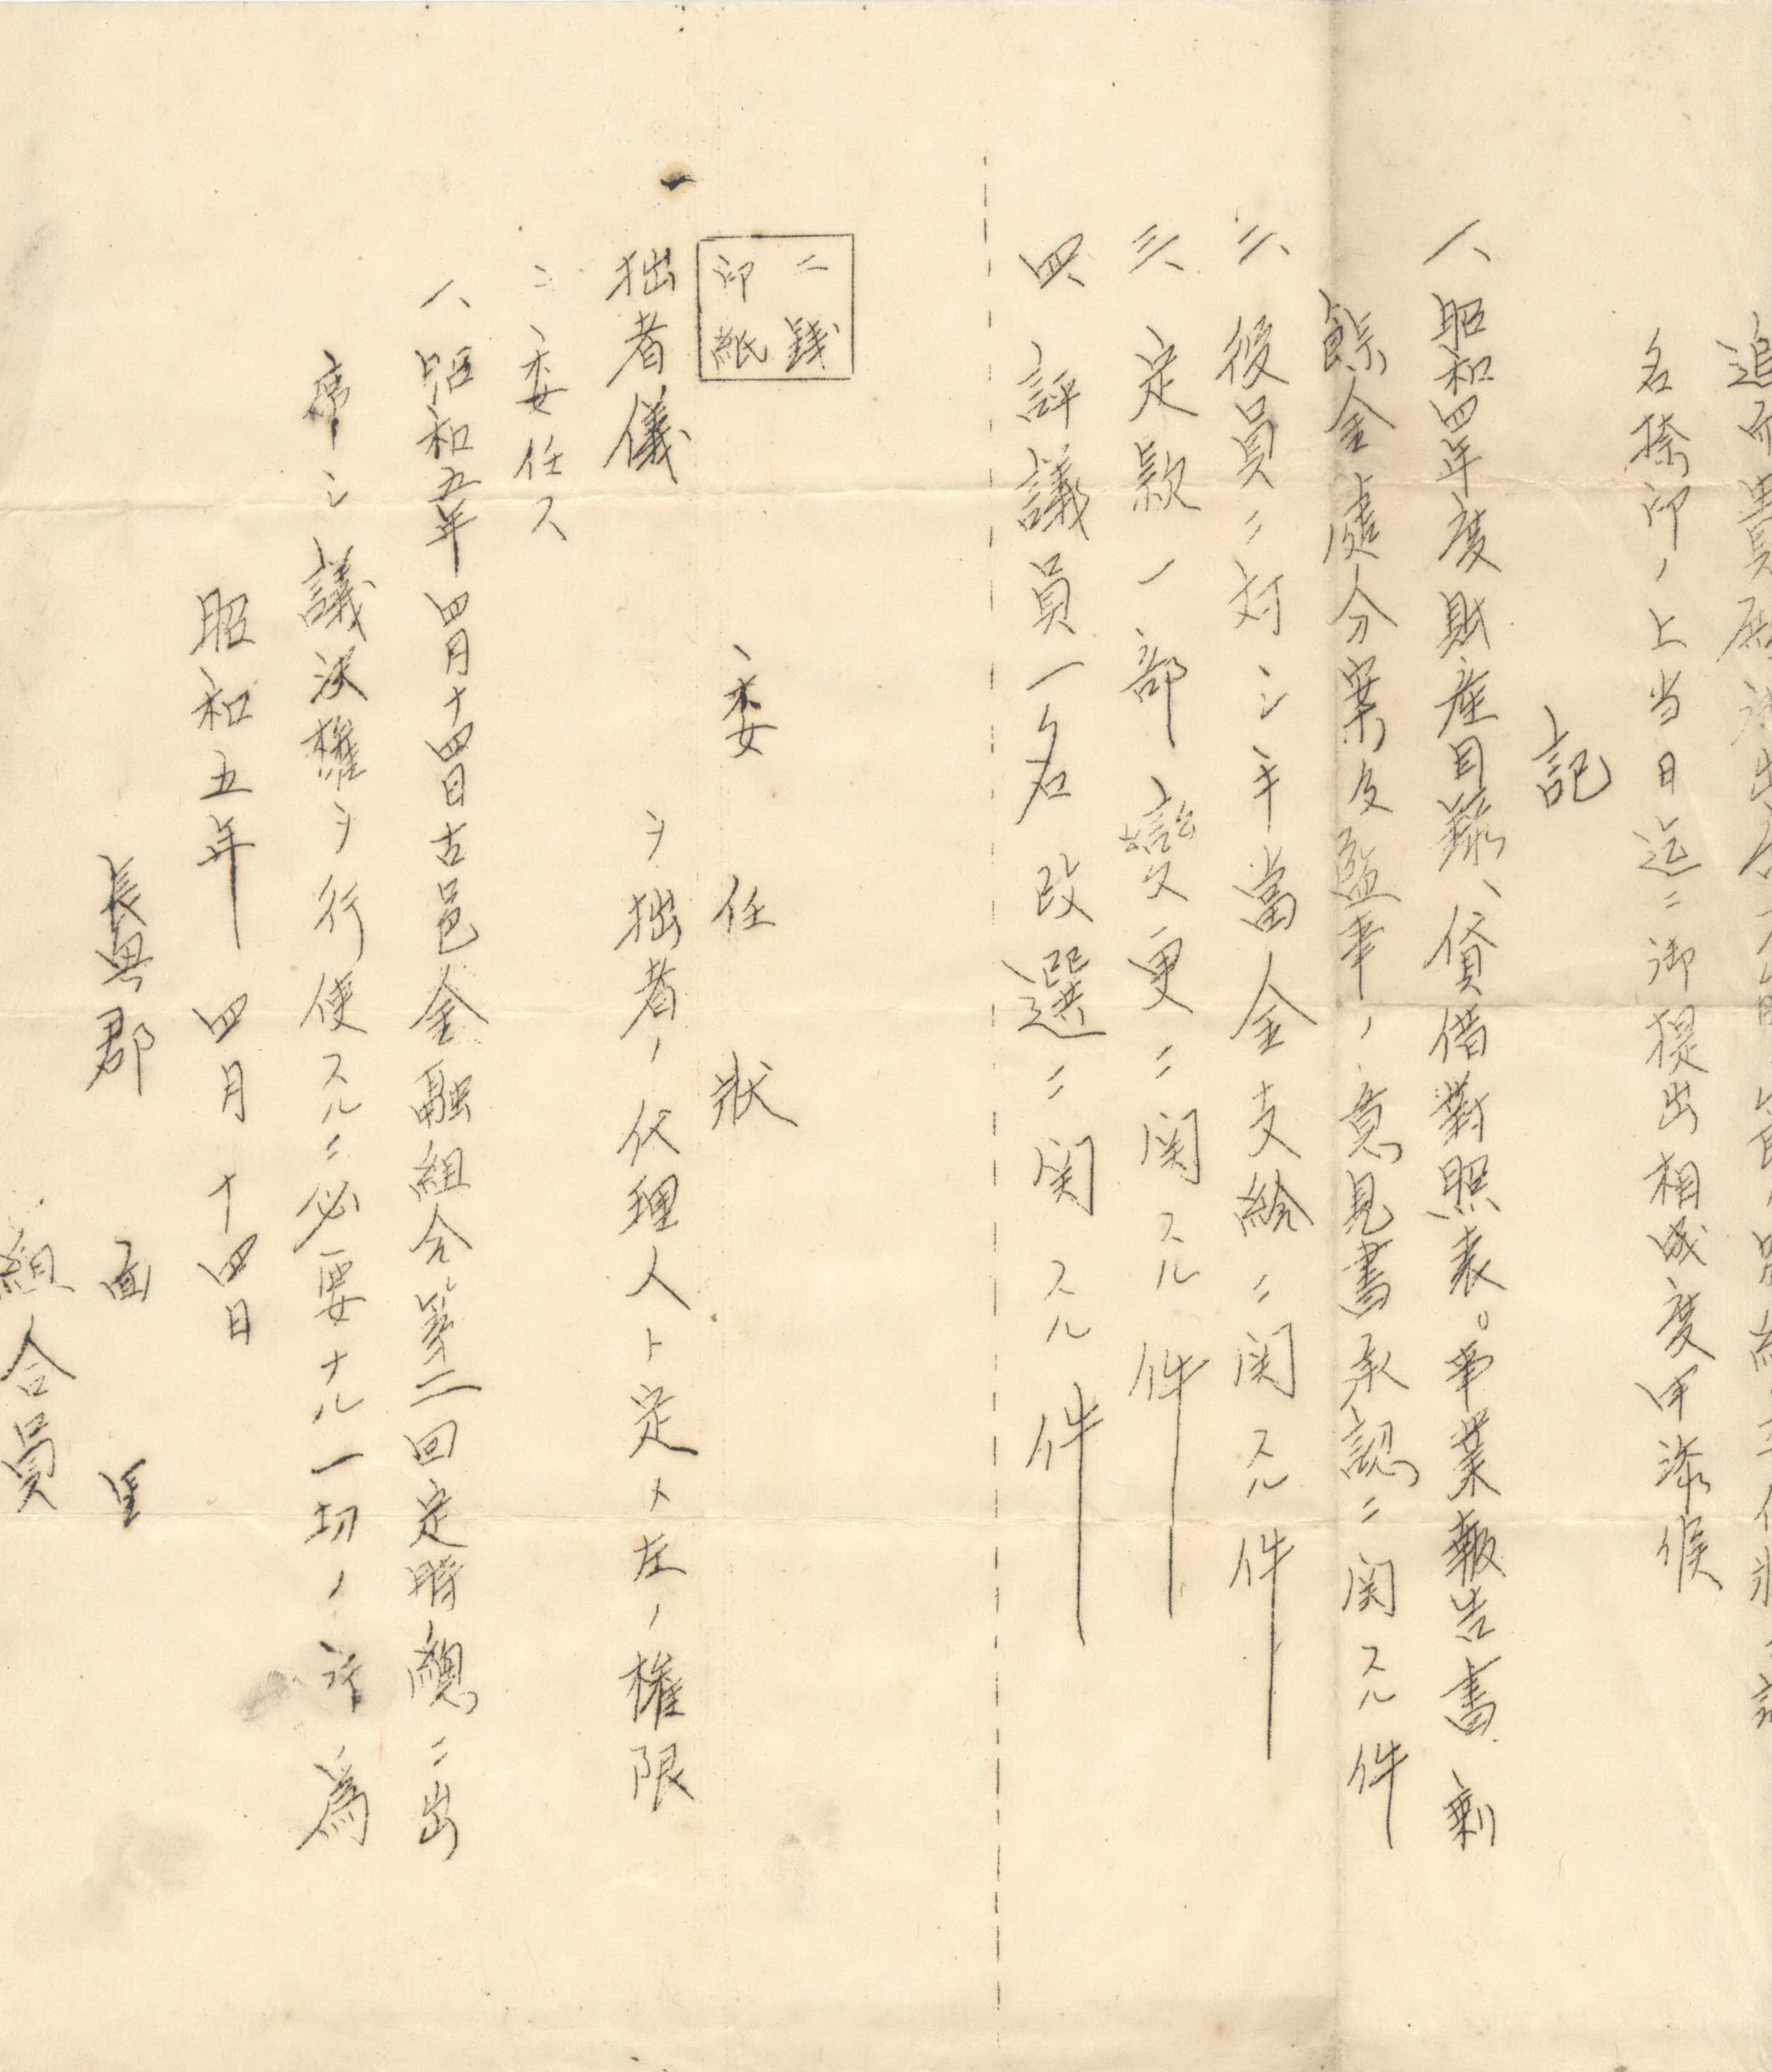 追而
名捺印ノ上当日迄ニ御提出相成度申添候
記
一、昭和四年度財産目録、貸借對照表。事業報告書 剰
餘金處分案及監事ノ意見書承認ニ関スル件
二、役員ニ対シ手當金支給ニ関スル件
三、定款一部変更ニ関スル件
四、評議員一名改選ニ関スル件
二錢
印紙
委任狀
拙者儀 ヲ拙者ノ代理人ト定メ左ノ権限
ヲ委任ス
一、昭和五年四月十四日古邑金融組合第二回定時總ニ出
席シ議決権ヲ行使スルニ必要ナル一切ノ行為
昭和五年 四月十四日
長興郡 面 里
組合員